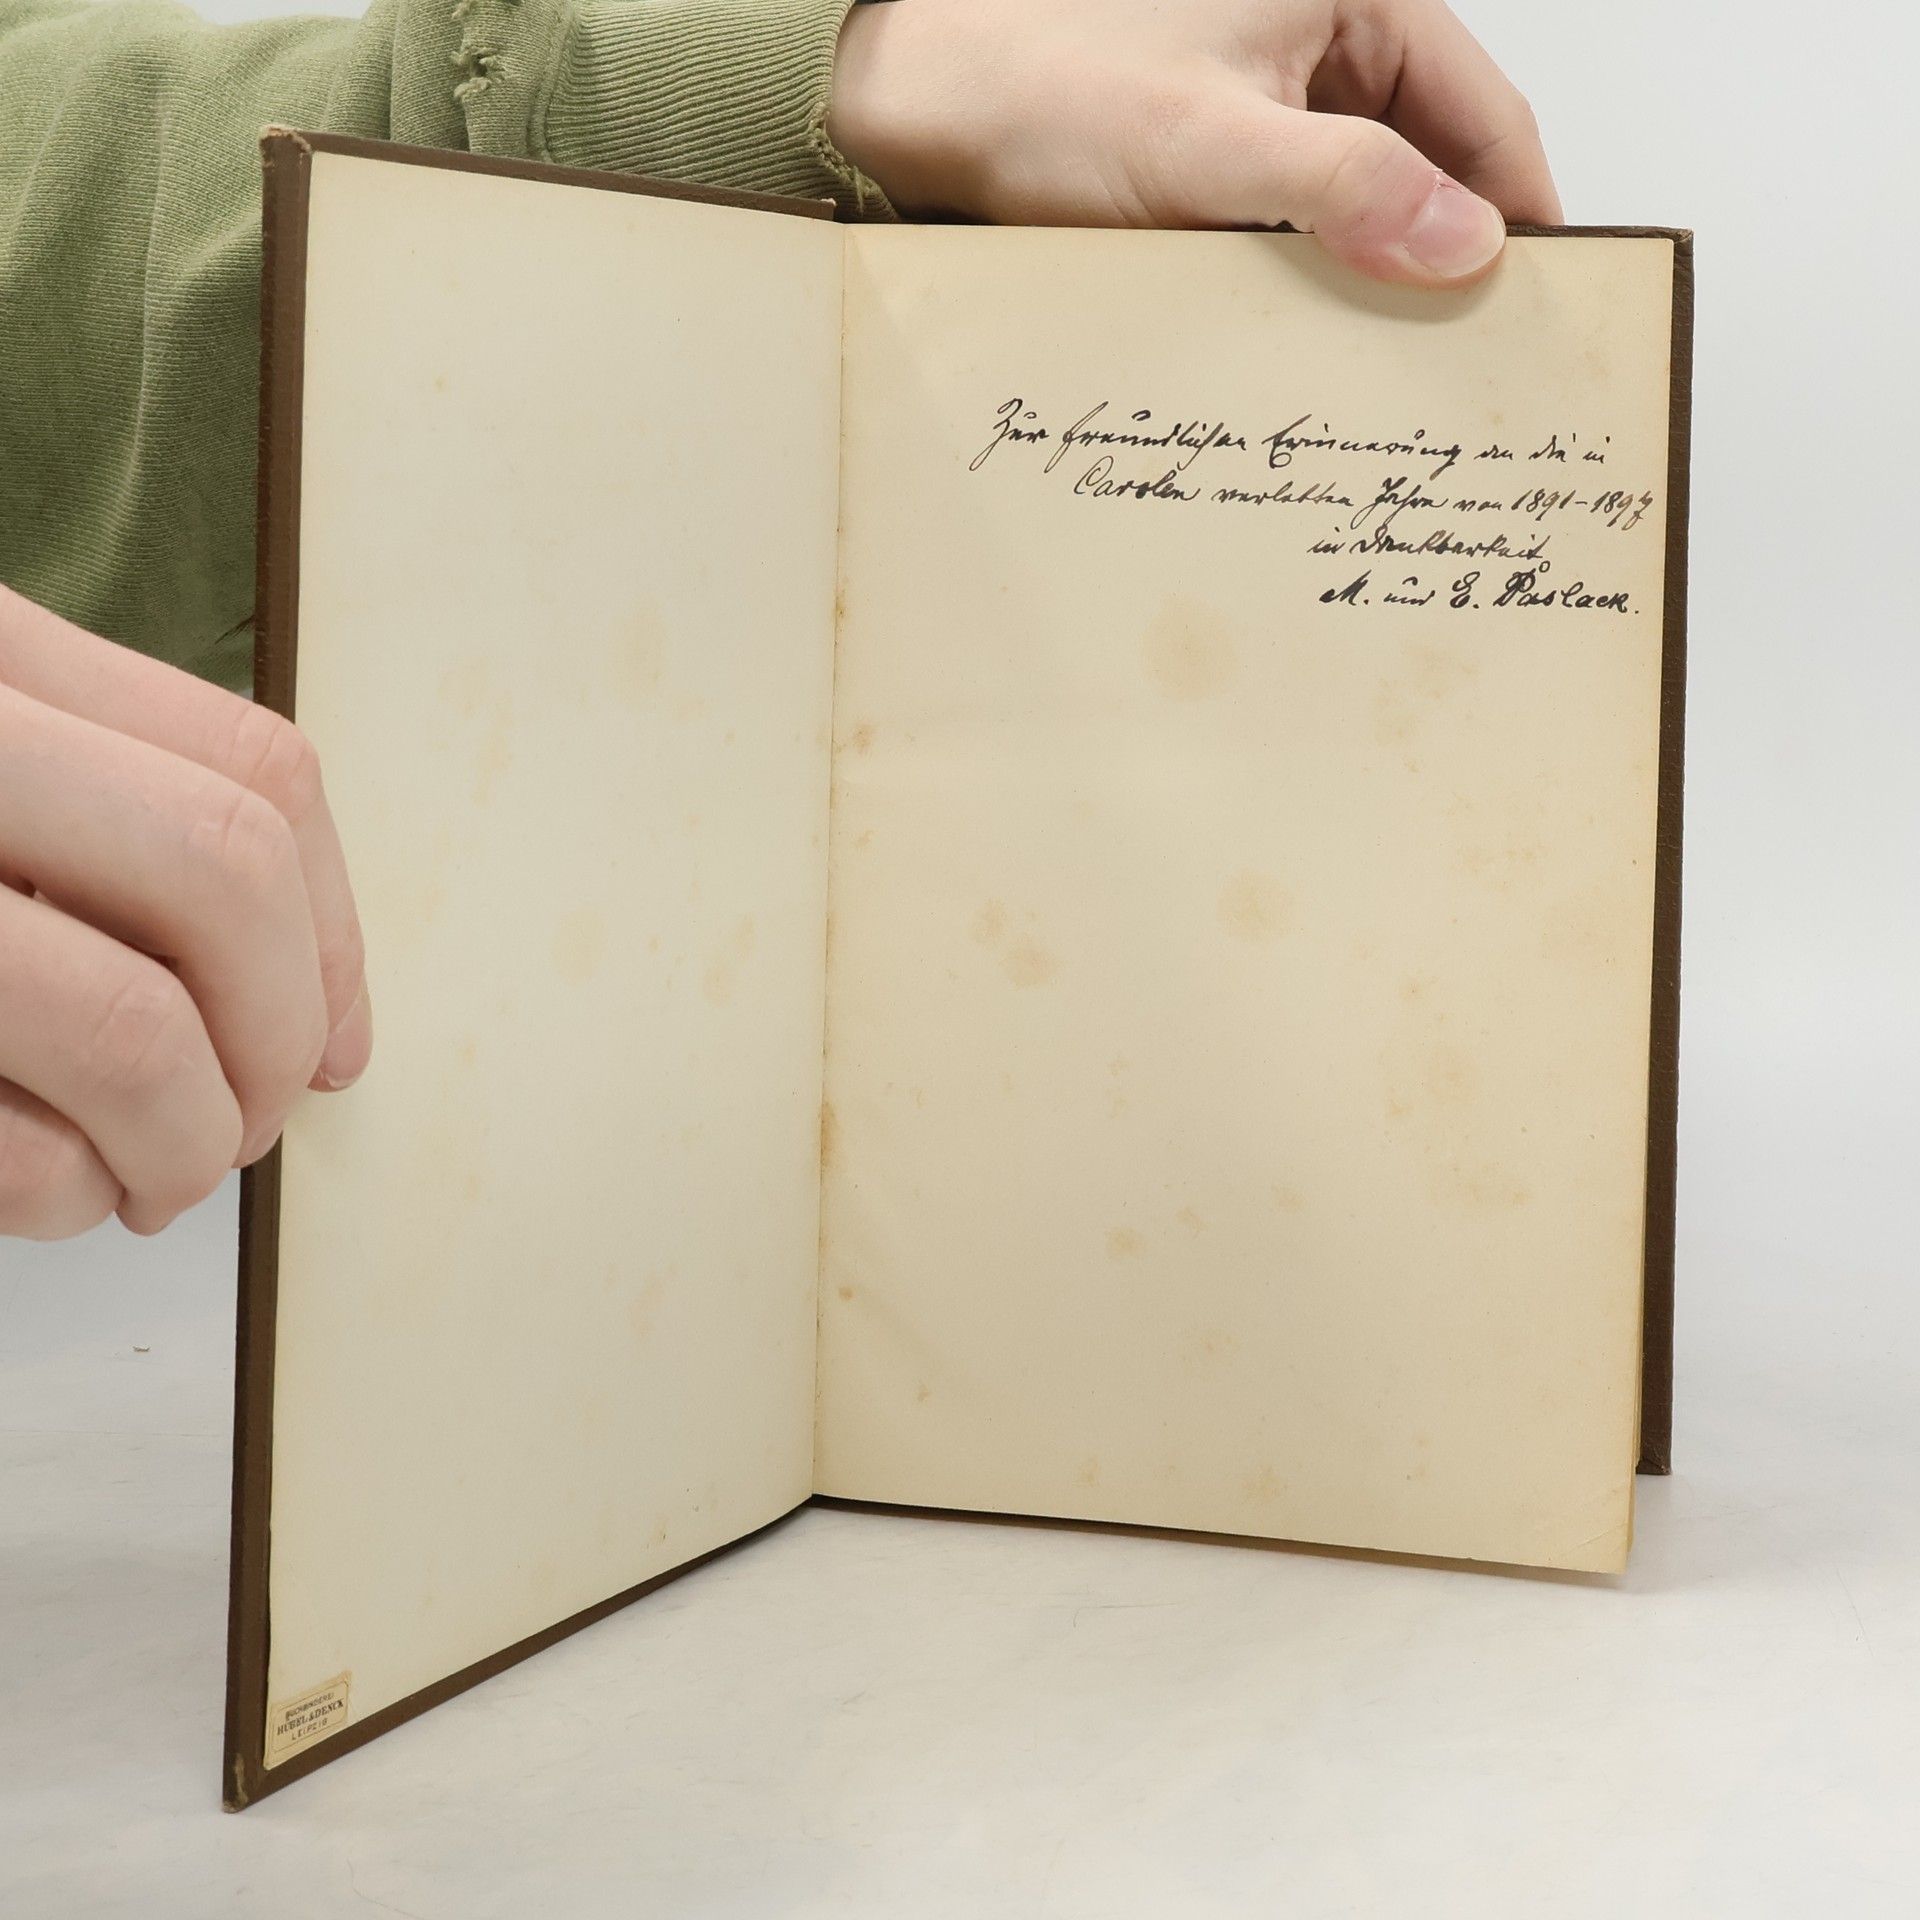 Zur freundlichen Erinnerung an die in
Carolen verlebten Jahre von 1891-1897
in Dankbarkeit
M. und E. Paslack.
BUCHBINDEREI
HÜBEL & DENCK
LEIPZIG